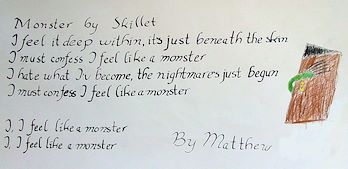 Monster by Skillet
I feel it deep within, its just beneath the skin
I must confess I feel like a monster
I hate what Iv become, the nightmares just begun
I must confess I feel like a monster
I, I feel like a monster
I, I feel like a monster
By Matthew